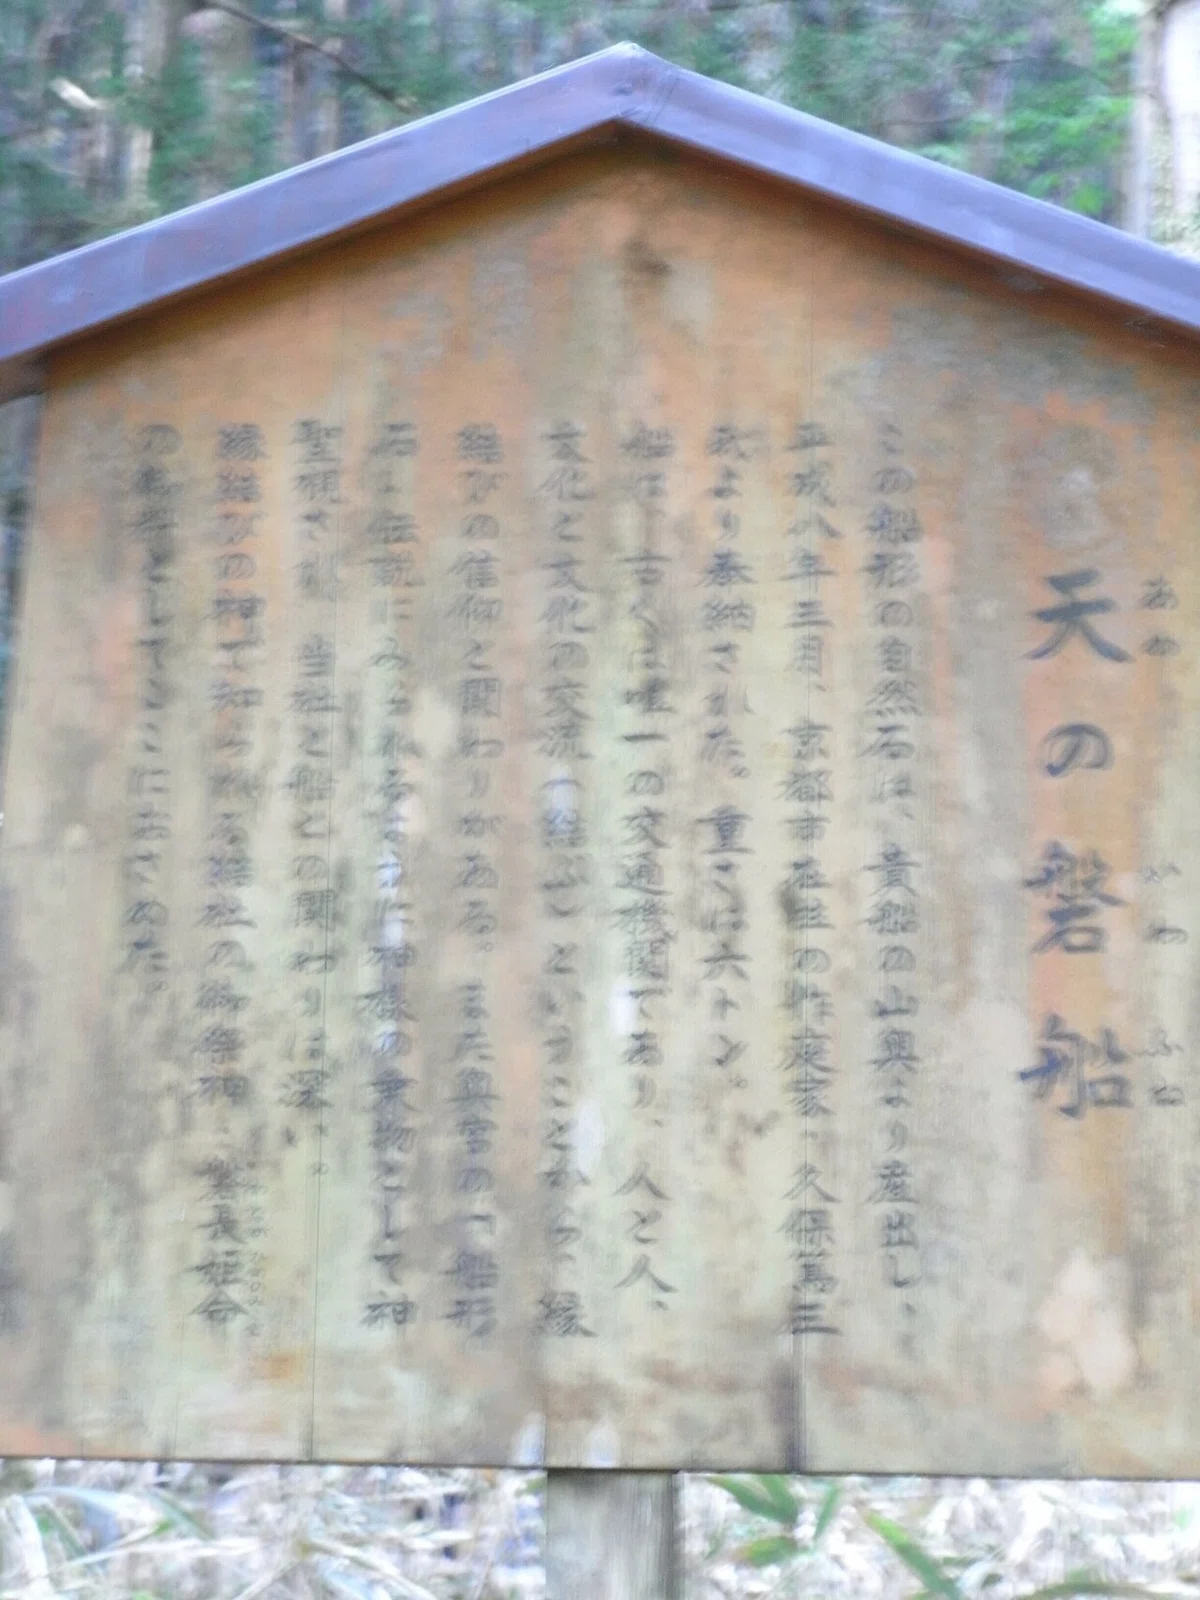 天の磐船
あめ いわ ふね
この船形の自然石は、貴船の山奥より産出し、
平成八年三月、京都市在住の作庭家・久保篤三
氏より奉納された。重さは六トン。
船は、古くは唯一の交通機関であり、人と人、
文化と文化の交流「結ぶ」ということから、縁
結びの信仰と関わりがある。また奥宮の「船形
石」伝説にみられるように神様の乗物として神
聖視され、当社と船との関わりは深い。
縁結びの神で知られる結社の御祭神・磐長姫命
の御料としてここにおさめた。